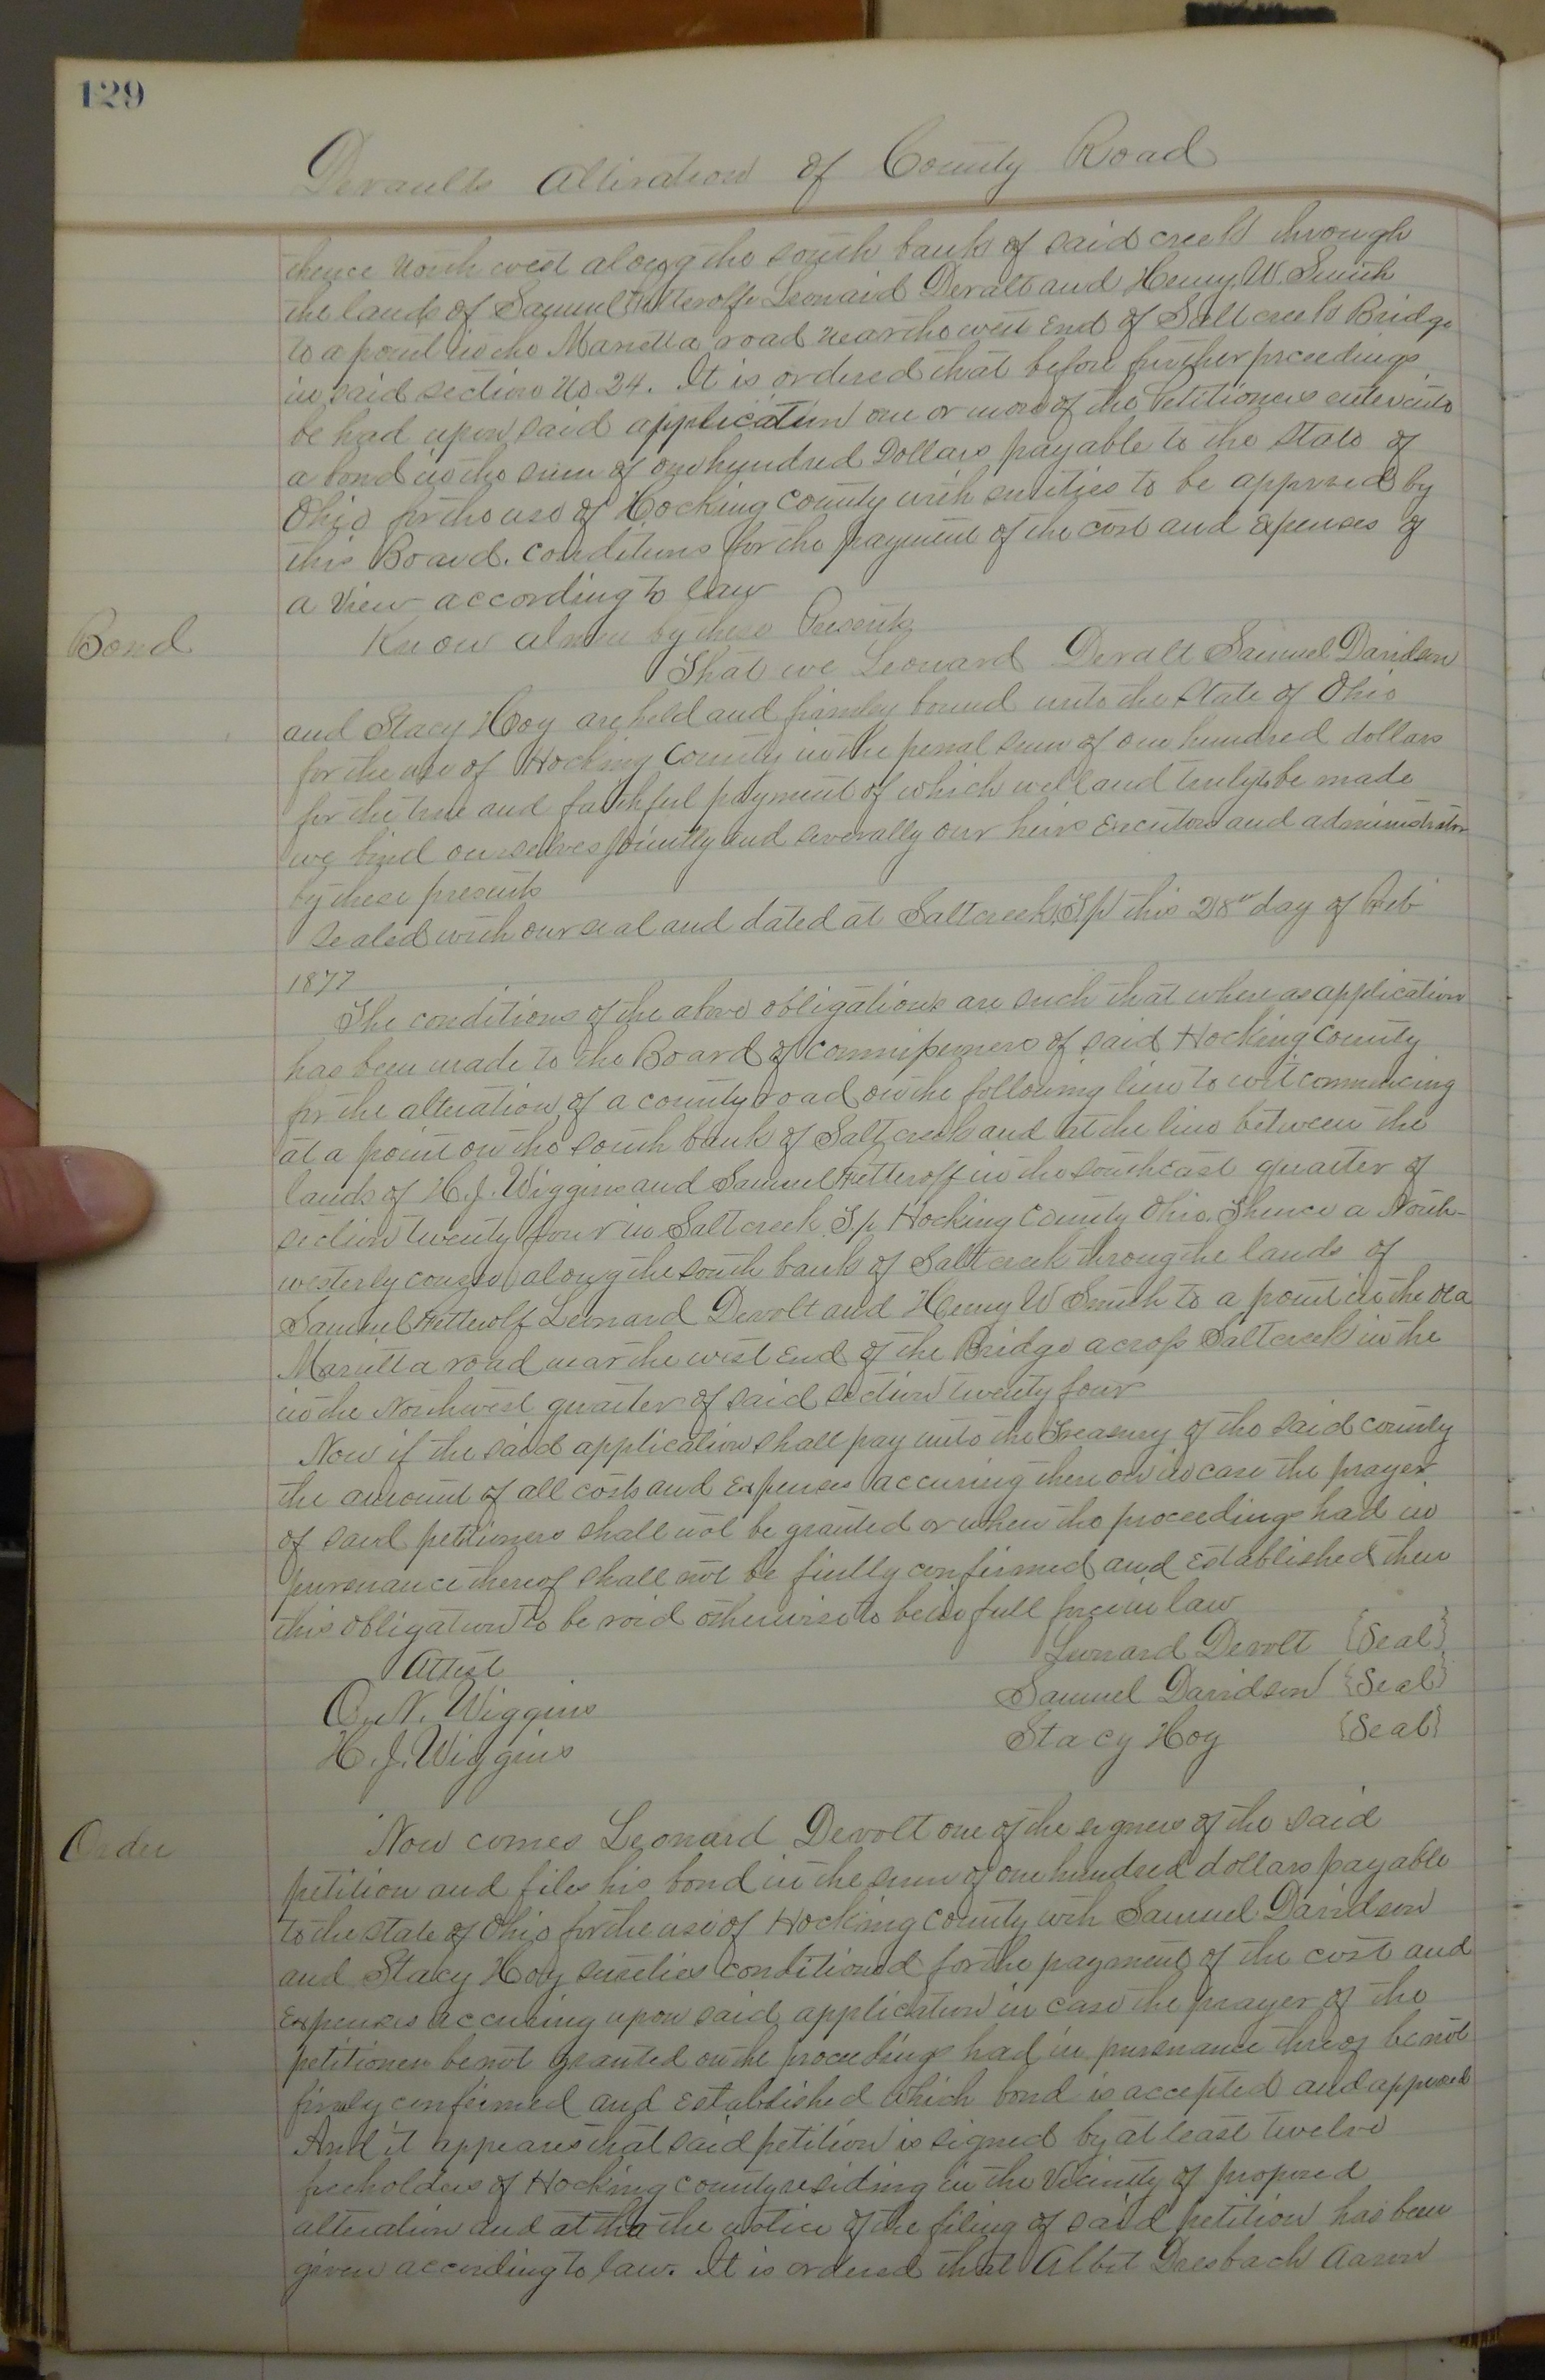 129
Devaults Alteration of County Road
thence North west along the south bank of said creek through
the lands of Samuel Fetterolf Leonard Devalt and Henry W. Smith
to a point in the Marietta road near the west End of Saltcreek Bridge
in said section No 24. It is ordered that before further prceedings
be had upon said application one or more of the Petitioners enter into
a bond in the sum of one hundred Dollars payable to the State of
Ohio for the use of Hocking County with sureties to be approved by
this Board. Conditions for the payment of the cost and Expenses of
a View according to law
Bond
Know al men by these Presents
That we Leonard Devalt Samuel Davidson
and Stacy Hoy are held and firmley bound unto the State of Ohio
for the use of Hocking County in the penal sum of one hundred dollars
for the true and faithful payment of which well and truly to be made
we bind ourselves jointly and severally our heirs Executors and administrators
by these presents
Sealed with our seal and dated at Saltcreek Tp this 28th day of Feb
1877
The conditions of the above obligations are such that where as application
has been made to the Board of Commissioners of said Hocking County
for the alteration of a county road on the following line to wit commencing
at a point on the south bank of Salt creek and at the line between the
lands of H. J. Wiggins and Samuel Fetterolf in the southeast quarter of
section twenty four in Saltcreek Tp Hocking County Ohio. Thence a North-
westerly course along the south bank of Salt creek through the lands of
Samuel Fetterolf Leonard Devolt and Henry W Smith to a point in the old
Marietta road near the west End of the Bridge across Saltcreek in the
in the Northwest quarter of said section twenty four
Now if the said application shall pay unto the Treasury of the said county
the amount of all costs and Expenses accuring there on in case the prayer
of said petitioners shall not be granted or when the proceedings had in
pursuance thereof shall not be finlly confirmed and Established then
this obligation to be void otherwise to be in full force in law
Leonard Devolt {Seal}
Attest
Samuel Davidson {Seal}
O. N. Wiggins
Stacy Hoy {Seal}
H. J. Wiggins
Order
Now comes Leonard Devolt one of the signers of the said
petition and files his bond in the sum of one hundred dollars payable
to the State of Ohio for the use of Hocking County with Samuel Davidson
and Stacy Hoy sureties conditioned for the payment of the cost and
Expenses accruing upon said application in case the prayer of the
petitioners be not granted on the proceedings had in pursuance thereof be not
finaly confirmed and Established which bond is accepted and approved
And it appeares that said petition is signed by at least twelve
freeholders of Hocking county residing in the Vicinity of proposed
alteration and at tha the notice of the filing of said petition has been
given according to law. It is ordered that Albet Dresbach Aaron